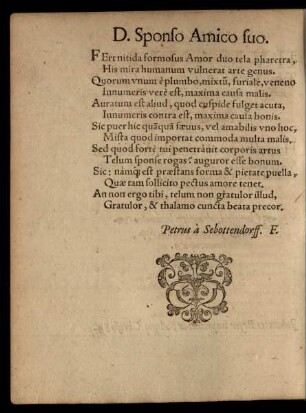 D. Sponso Amico suo.
FErt nitida formosus Amor duo tela pharetra,
His mira humanum vulnerat arte genus.
Quorum vnum è plumbo, mixtũ, furiale, veneno
Innumeris verè est, maxima causa malis.
Auratum est aliud, quod cuspide fulget acuta,
Innumeris contra est, maxima causa bonis.
Sic puer hic quãquã sæuus, vel amabilis vno hoc,
Mista quod importat commoda multa malis.
Sed quod fortè tui penetrârit corporis artus
Telum sponse rogas? auguror esse bonum.
Sic: námq; est præstans forma & pietate puella,
Quæ tam sollicito pectus amore tenet.
An non ergo tibi, telum non gratulor illud,
Gratulor, & thalamo cuncta beata precor.
Petrus à Sebottendorff. F.